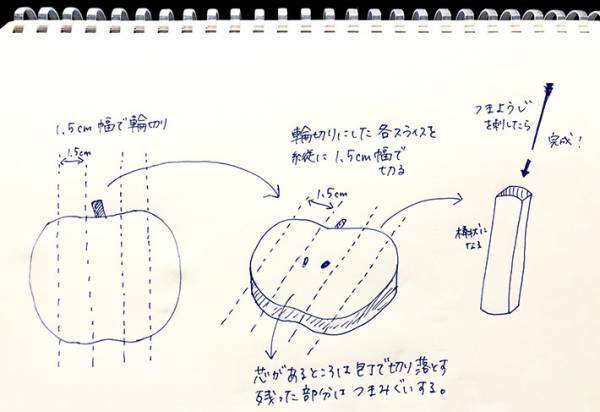 1.5cm 幅で輪切り
1.5cm
輪切りにした各スライスを
縦に 1.5cm幅で
切る
1.5cm
芯があるところは包丁で切り落とす
残った部分は つまみぐいする。
つまようじ
を刺したら
完成！
棒状に
なる